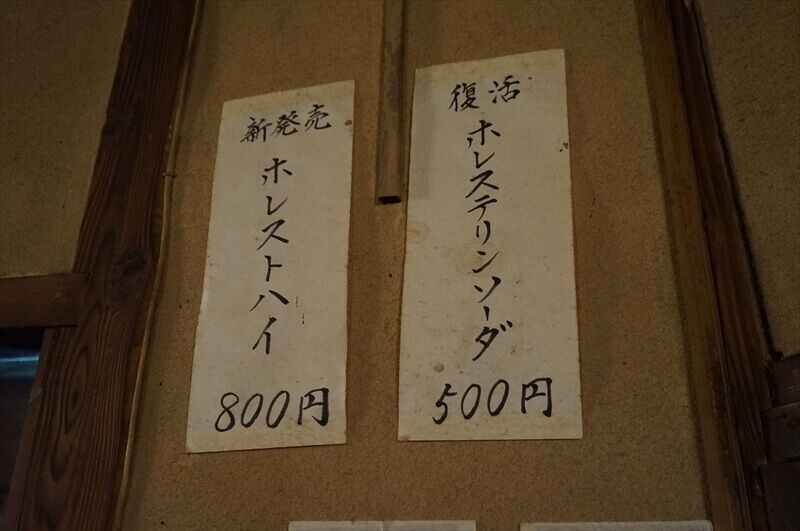 復活
ホレステリンソーダ
500円
新発売
ホレストハイ
800円